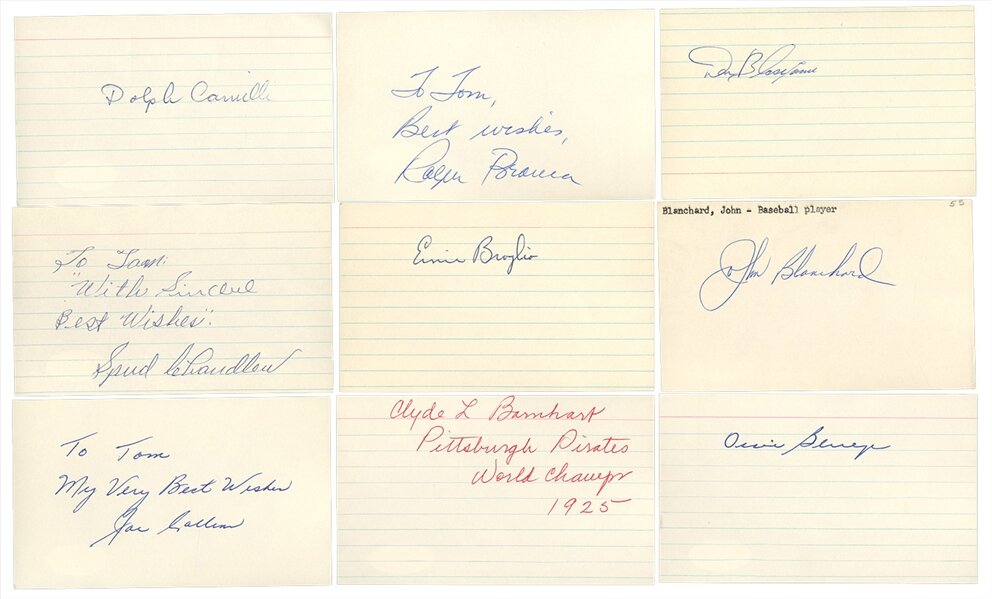 Dolph Camilli
To Tom,
Best wishes,
Roger Peramea
Don Blasingame
To Tom:
"With Sincere
Best Wishes".
Spud Chandler
Ernie Broglio
Blanchard, John - Baseball player
55
John Blanchard
To Tom
My Very Best Wishes
Joe
Clyde L Barnhart
Pittsburgh Pirates
World Champs
1925
Ossie